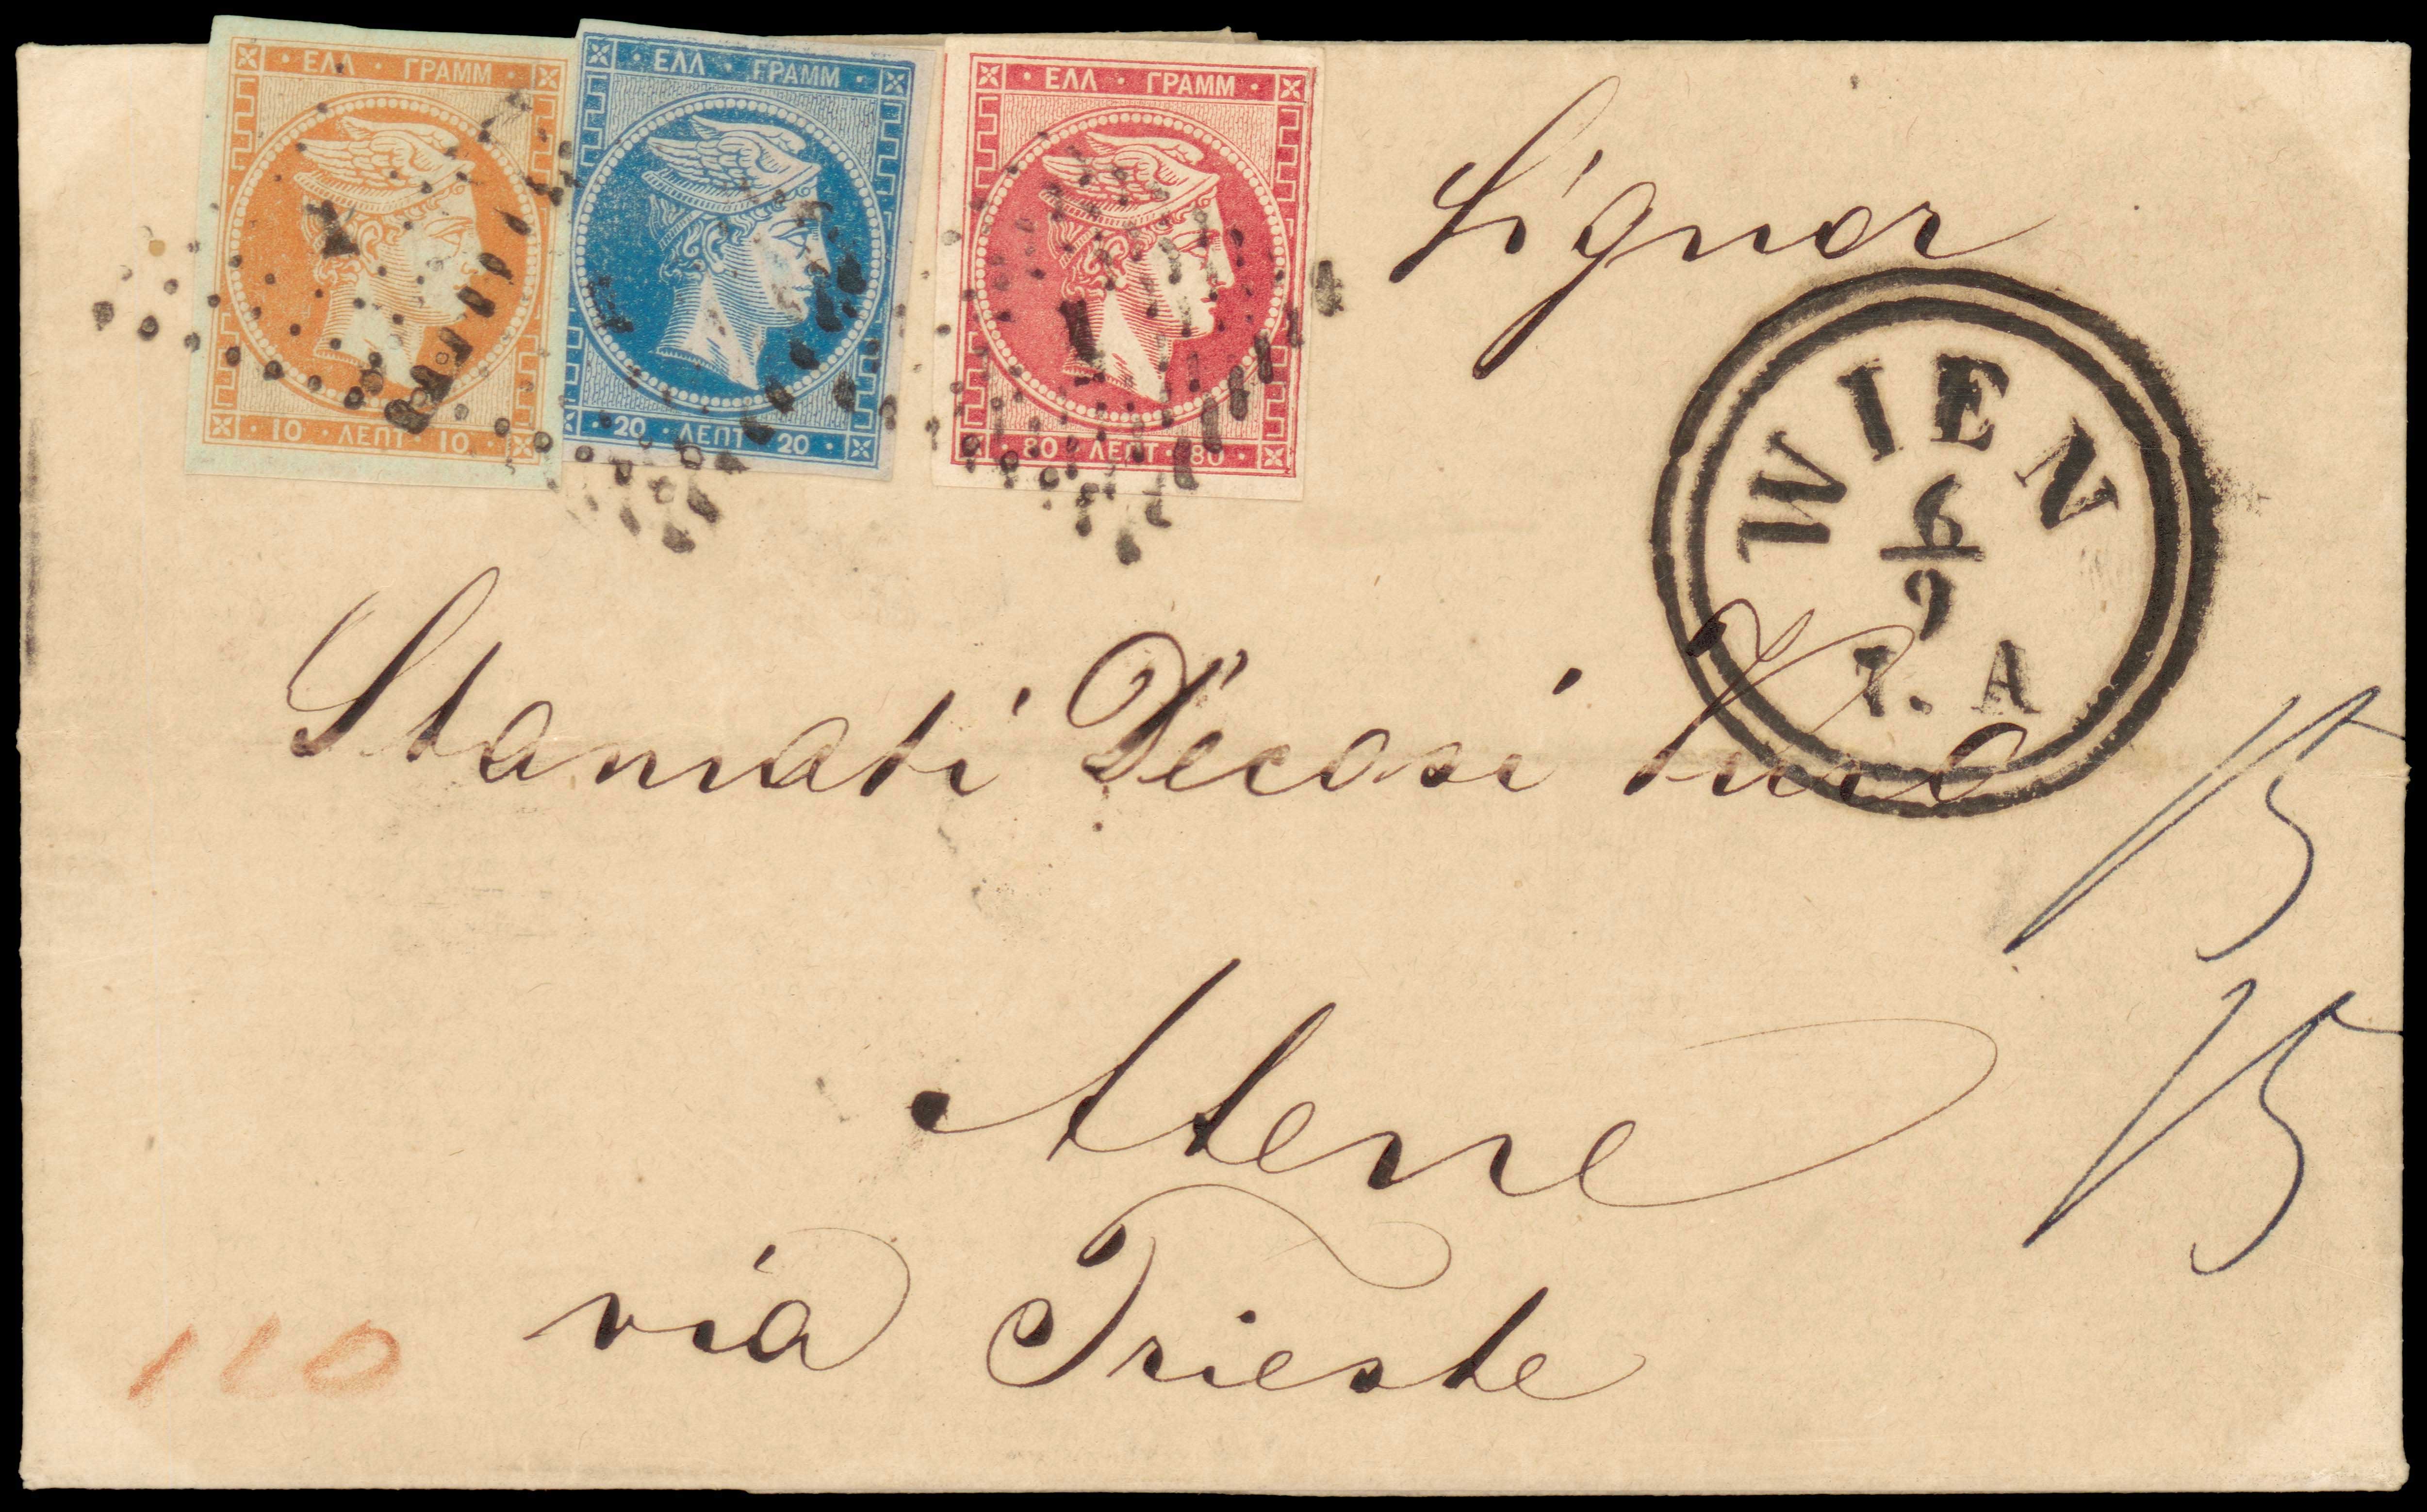 · ΕΛΛ · ΓΡΑΜΜ ·
· 10 · ΛΕΠΤ · 10 ·
· ΕΛΛ · ΓΡΑΜΜ ·
· 20 · ΛΕΠΤ · 20 ·
· ΕΛΛ · ΓΡΑΜΜ ·
· 80 · ΛΕΠΤ · 80 ·
Signor
WIEN
6
9
7. A
Stamati Décosi
15
Atene
15
via Trieste
110